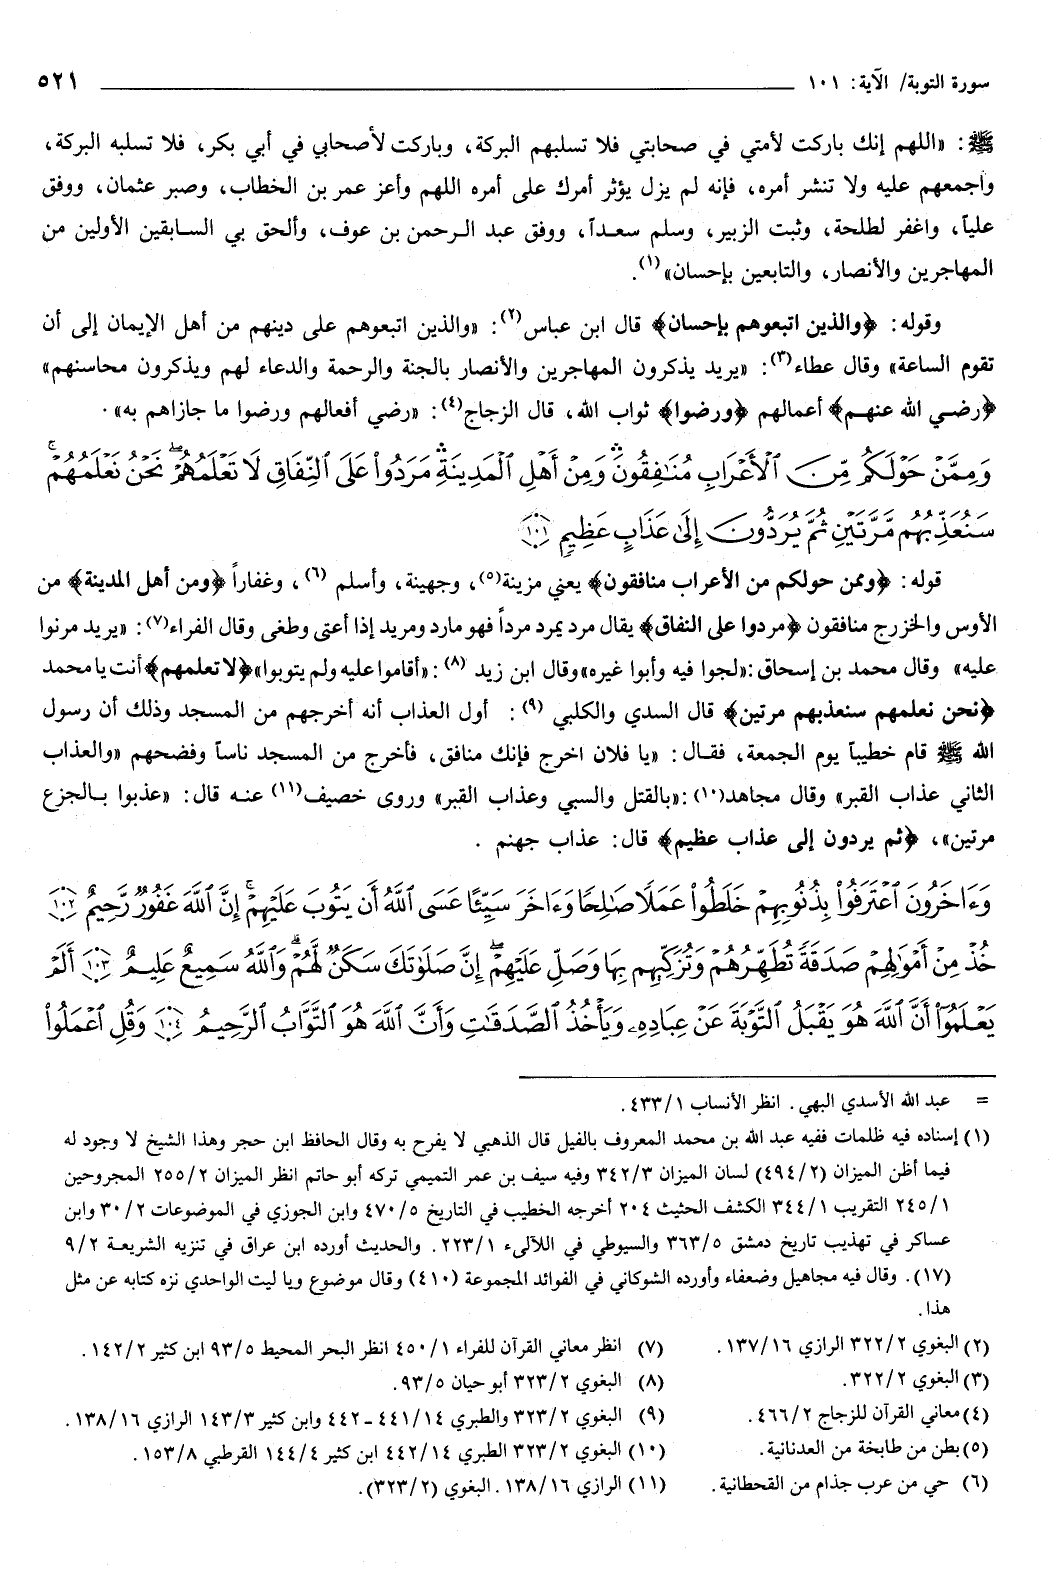 سورة التوبة/ الآية: ١٠١ ٥٢١
ﷺ: «اللهم إنك باركت لأمتي في صحابتي فلا تسلبهم البركة، وباركت لأصحابي في أبي بكر، فلا تسلبه البركة،
واجمعهم عليه ولا تنشر أمره، فإنه لم يزل يؤثر أمرك على أمره اللهم وأعز عمر بن الخطاب، وصبر عثمان، ووفق
علياً، واغفر لطلحة، وثبت الزبير، وسلم سعداً، ووفق عبد الرحمن بن عوف، وألحق بي السابقين الأولين من
المهاجرين والأنصار، والتابعين بإحسان»(١).
وقوله: ﴿والذين اتبعوهم بإحسان﴾ قال ابن عباس(٢): «والذين اتبعوهم على دينهم من أهل الإيمان إلى أن
تقوم الساعة» وقال عطاء(٣): «يريد يذكرون المهاجرين والأنصار بالجنة والرحمة والدعاء لهم ويذكرون محاسنهم»
﴿رضي الله عنهم﴾ أعمالهم ﴿ورضوا﴾ ثواب الله، قال الزجاج(٤): «رضي أفعالهم ورضوا ما جازاهم به».
وَمِمَّنْ حَوْلَكُم مِّنَ ٱلْأَعْرَابِ مُنَٰفِقُونَۖ وَمِنْ أَهْلِ ٱلْمَدِينَةِۖ مَرَدُوا۟ عَلَى ٱلنِّفَاقِ لَا تَعْلَمُهُمْۖ نَحْنُ نَعْلَمُهُمْۚ
سَنُعَذِّبُهُم مَّرَّتَيْنِ ثُمَّ يُرَدُّونَ إِلَىٰ عَذَابٍ عَظِيمٍ ۝١٠١
قوله: ﴿وممن حولكم من الأعراب منافقون﴾ يعني مزينة(٥)، وجهينة، وأسلم (٦)، وغفاراً ﴿ومن أهل المدينة﴾ من
الأوس والخزرج منافقون ﴿مردوا على النفاق﴾ يقال مرد يمرد مرداً فهو مارد ومريد إذا أعتى وطغى وقال الفراء(٧): «يريد مرنوا
عليه» وقال محمد بن إسحاق:«لجوا فيه وأبوا غيره»وقال ابن زيد (٨):«أقاموا عليه ولم يتوبوا»﴿لا تعلمهم﴾ أنت يا محمد
﴿نحن نعلمهم سنعذبهم مرتين﴾ قال السدي والكلبي (٩): أول العذاب أنه أخرجهم من المسجد وذلك أن رسول
الله ﷺ قام خطيباً يوم الجمعة، فقال: «يا فلان اخرج فإنك منافق، فأخرج من المسجد ناساً وفضحهم «والعذاب
الثاني عذاب القبر» وقال مجاهد(١٠):«بالقتل والسبي وعذاب القبر» وروى خصيف(١١) عنه قال: «عذبوا بالجزع
مرتين»، ﴿ثم يردون إلى عذاب عظيم﴾ قال: عذاب جهنم .
وَءَاخَرُونَ ٱعْتَرَفُوا۟ بِذُنُوبِهِمْ خَلَطُوا۟ عَمَلًا صَٰلِحًا وَءَاخَرَ سَيِّئًا عَسَى ٱللَّهُ أَن يَتُوبَ عَلَيْهِمْۚ إِنَّ ٱللَّهَ غَفُورٌ رَّحِيمٌ ۝١٠٢
خُذْ مِنْ أَمْوَٰلِهِمْ صَدَقَةً تُطَهِّرُهُمْ وَتُزَكِّيهِم بِهَا وَصَلِّ عَلَيْهِمْۖ إِنَّ صَلَوٰتَكَ سَكَنٌ لَّهُمْۗ وَٱللَّهُ سَمِيعٌ عَلِيمٌ ۝١٠٣ أَلَمْ
يَعْلَمُوٓا۟ أَنَّ ٱللَّهَ هُوَ يَقْبَلُ ٱلتَّوْبَةَ عَنْ عِبَادِهِۦ وَيَأْخُذُ ٱلصَّدَقَٰتِ وَأَنَّ ٱللَّهَ هُوَ ٱلتَّوَّابُ ٱلرَّحِيمُ ۝١٠٤ وَقُلِ ٱعْمَلُوا۟
= عبد الله الأسدي البهي. انظر الأنساب ٤٣٣/١.
(١) إسناده فيه ظلمات ففيه عبد الله بن محمد المعروف بالفيل قال الذهبي لا يفرح به وقال الحافظ ابن حجر وهذا الشيخ لا وجود له
فيما أظن الميزان (٤٩٤/٢) لسان الميزان ٣٤٢/٣ وفيه سيف بن عمر التميمي تركه أبو حاتم انظر الميزان ٢٥٥/٢ المجروحين
٢٤٥/١ التقريب ٣٤٤/١ الكشف الحثيث ٢٠٤ أخرجه الخطيب في التاريخ ٤٧٠/٥ وابن الجوزي في الموضوعات ٣٠/٢ وابن
عساكر في تهذيب تاريخ دمشق ٣٦٣/٥ والسيوطي في اللآلىء ٢٢٣/١. والحديث أورده ابن عراق في تنزيه الشريعة ٩/٢
(١٧). وقال فيه مجاهيل وضعفاء وأورده الشوكاني في الفوائد المجموعة (٤١٠) وقال موضوع ويا ليت الواحدي نزه كتابه عن مثل
هذا.
(٢) البغوي ٣٢٢/٢ الرازي ١٣٧/١٦.
(٣) البغوي ٣٢٢/٢.
(٤) معاني القرآن للزجاج ٤٦٦/٢.
(٥) بطن من طابخة من العدنانية.
(٦) حي من عرب جذام من القحطانية.
(٧) انظر معاني القرآن للفراء ٤٥٠/١ انظر البحر المحيط ٩٣/٥ ابن كثير ١٤٢/٢.
(٨) البغوي ٣٢٣/٢ أبو حيان ٩٣/٥.
(٩) البغوي ٣٢٣/٢ والطبري ٤٤١/١٤ - ٤٤٢ وابن كثير ١٤٣/٣ الرازي ١٣٨/١٦.
(١٠) البغوي ٣٢٣/٢ الطبري ٤٤٢/١٤ ابن كثير ١٤٤/٤ القرطبي ١٥٣/٨.
(١١) الرازي ١٣٨/١٦. البغوي (٣٢٣/٢).